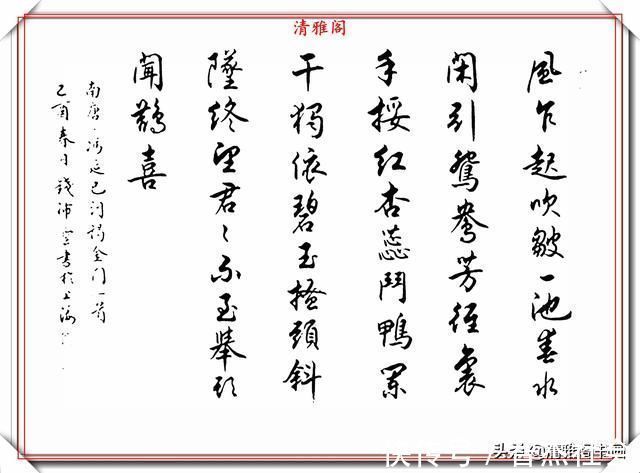 清雅阁
風乍起吹皺一池春水
閑引鴛鴦芳徑裏
手挼紅杏蕊鬥鴨闌
干獨依碧玉搔頭斜
墜終望君〻不至舉頭
聞鵲喜
南唐、馮延巳詞謁金门一首
己酉春日錢沛雲書於上海
头条
快传号 /